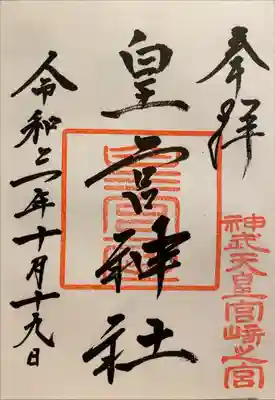 奉拝
神武天皇宮崎之宮
皇宮神社
令和三年十月十九日